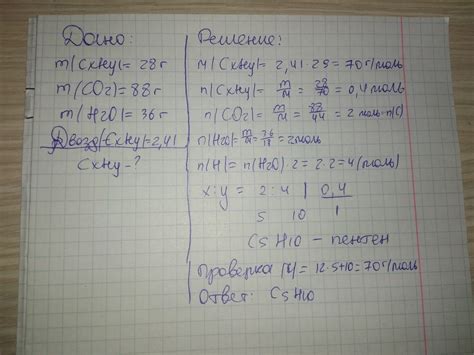 Дано:
m(CxHy)= 28г
m(CO2)= 88г
m(H2O)= 36г
Dвозд(CxHy)=2,41
CxHy-?
Решение:
M(CxHy)= 2,41·29=70г/моль
n(CxHy)= m/M = 28/70 = 0,4моль
n(CO2)= m/M = 88/44 = 2 моль n(C)
n(H2O)= m/M = 36/18 = 2моль
n(H)= n(H2O)·2=2·2=4(моль)
x:y = 2:4 | 0,4
5 10 1
C5H10 – пентен
Проверка M= 12·5+10=70г/моль
Ответ: C5H10